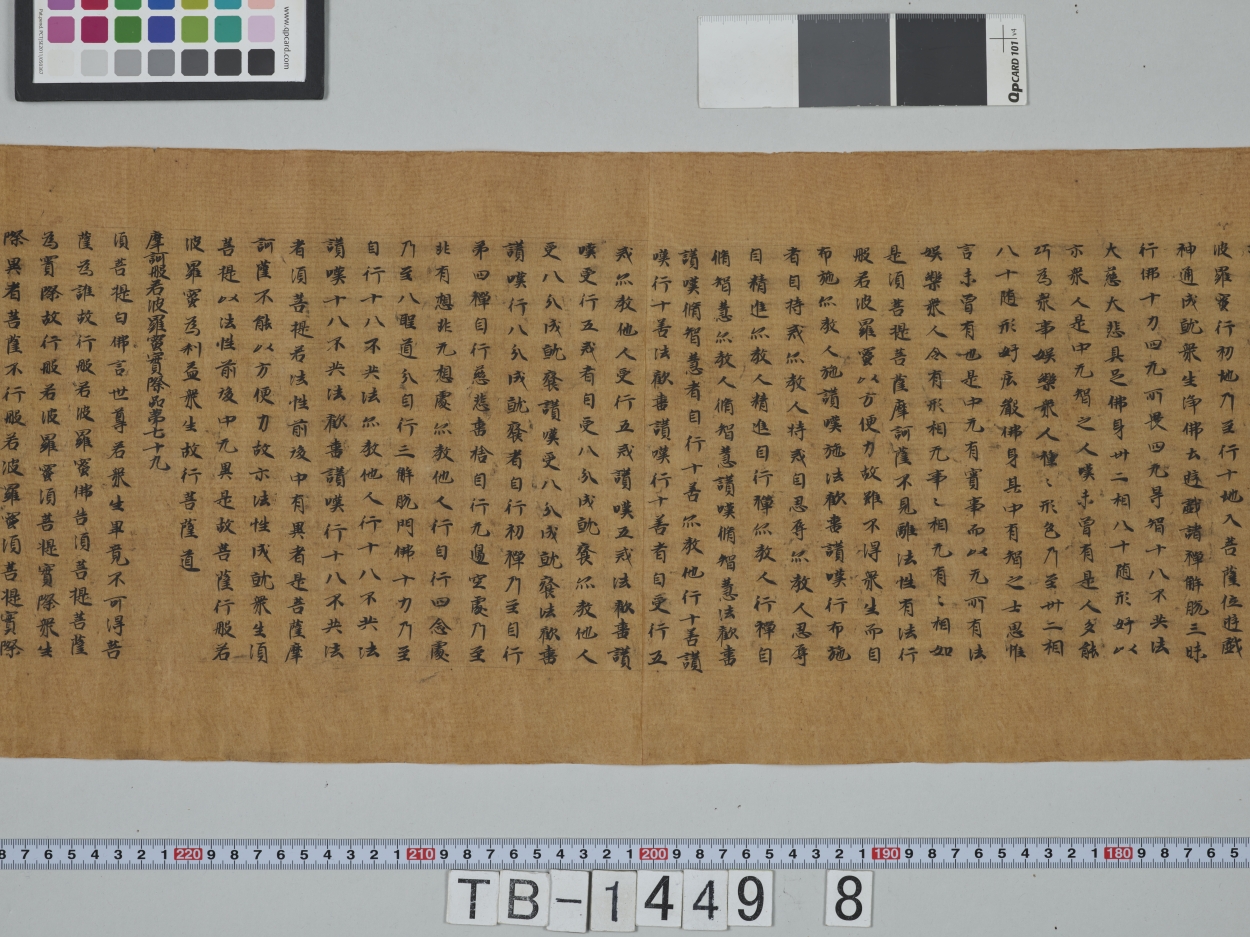 波羅蜜行初地乃至行十地入菩薩位遊戲
神通成就衆生淨佛去遊戲諸禪解脫三昧
行佛十力四无所畏四无导智十八不共法
大慈大悲具足佛身卅二相八十随形好以
示衆人是中无智之人嘆未曾有是人多能
巧為衆事娛樂衆人種〻形色乃至卅二相
八十随形好庄嚴佛身其中有智之士思惟
言未曾有也是中无有實事而以无所有法
娛樂衆人令有形相无事〻相无有〻相如
是須菩提菩薩摩訶薩不見離法性有法行
般若波羅蜜以方便力故雖不得衆生而自
布施亦教人施讃嘆施法歡喜讃嘆行布施
者自持戒亦教人持戒自忍辱亦教人忍辱
自精進亦教人精進自行禪亦教人行禪自
脩智慧亦教人脩智慧讃嘆脩智慧法歡喜
讃嘆脩智慧者自行十善亦教他行十善讃
嘆行十善法歡喜讃嘆行十善者自受行五
戒亦教他人受行五戒讃嘆五戒法歡喜讃
嘆受行五戒者自受八分成就齋亦教他人
受八分成就齋讃嘆受八分成就齋法歡喜
讃嘆行八分成就齋者自行初禪乃至自行
苐四禪自行慈悲喜捨自行无邊空處乃至
非有想非无想處亦教他人行自行四念處
乃至八聖道分自行三解脫門佛十力乃至
自行十八不共法亦教他人行十八不共法
讃嘆十八不共法歡喜讃嘆行十八不共法
者須菩提若法性前後中有異者是菩薩摩
訶薩不能以方便力故示法性成就衆生須
菩提以法性前後中无異是故菩薩行般若
波羅蜜為利益衆生故行菩薩道
摩訶般若波羅蜜實際品苐七十九
須菩提白佛言世尊若衆生畢竟不可得菩
薩為誰故行般若波羅蜜佛告須菩提菩薩
為實際故行般若波羅蜜須菩提實際衆生
際異者菩薩不行般若波羅蜜須菩提實際
www.qpcard.com
QPCARD 101 v4
8 7 6 5 4 3 2 1 220 9 8 7 6 5 4 3 2 1 210 9 8 7 6 5 4 3 2 1 200 9 8 7 6 5 4 3 2 1 190 9 8 7 6 5 4 3 2 1 180 9 8 7 6 5
TB-1449 8